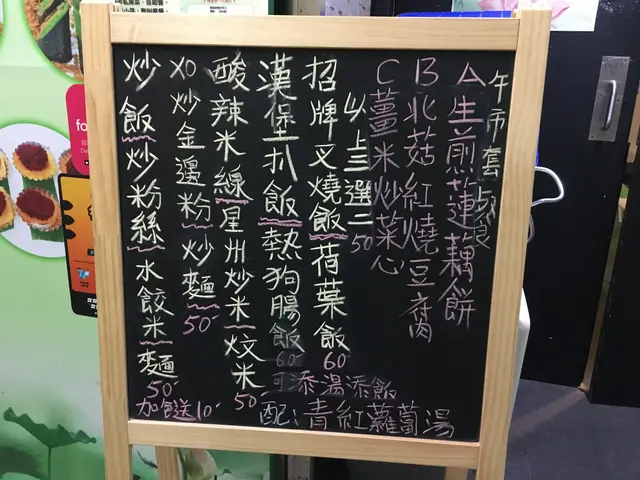 午市套餐
A生煎蓮藕餅
B北菇紅燒豆腐
C薑米炒菜心
以上三選二50
招牌叉燒飯荷葉飯60
漢保扒飯熱狗腸飯60
酸辣米線星州炒米炆米50
XO炒金邊粉炒麵50
炒飯炒粉絲水餃米麵50
可添湯添飯
配:青紅蘿蔔湯
加送10